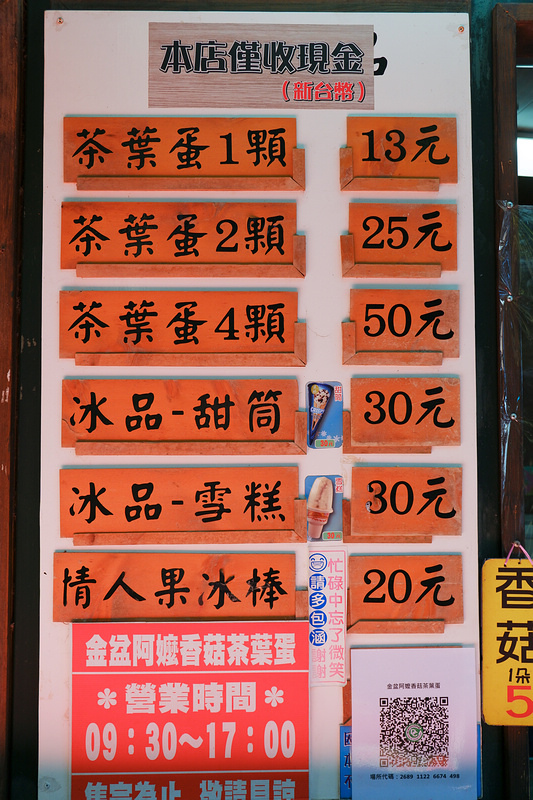 本店僅收現金
（新台幣）
茶葉蛋1顆 13元
茶葉蛋2顆 25元
茶葉蛋4顆 50元
冰品-甜筒 30元
冰品-雪糕 30元
情人果冰棒 20元
忙碌中忘了微笑
請多包涵
謝謝
金盆阿嬤香菇茶葉蛋
＊營業時間＊
09：30～17：00
售完為止 敬請見諒
金盆阿嬤香菇茶葉蛋
場所代碼：2689 1122 6674 498
香菇
1朵
5